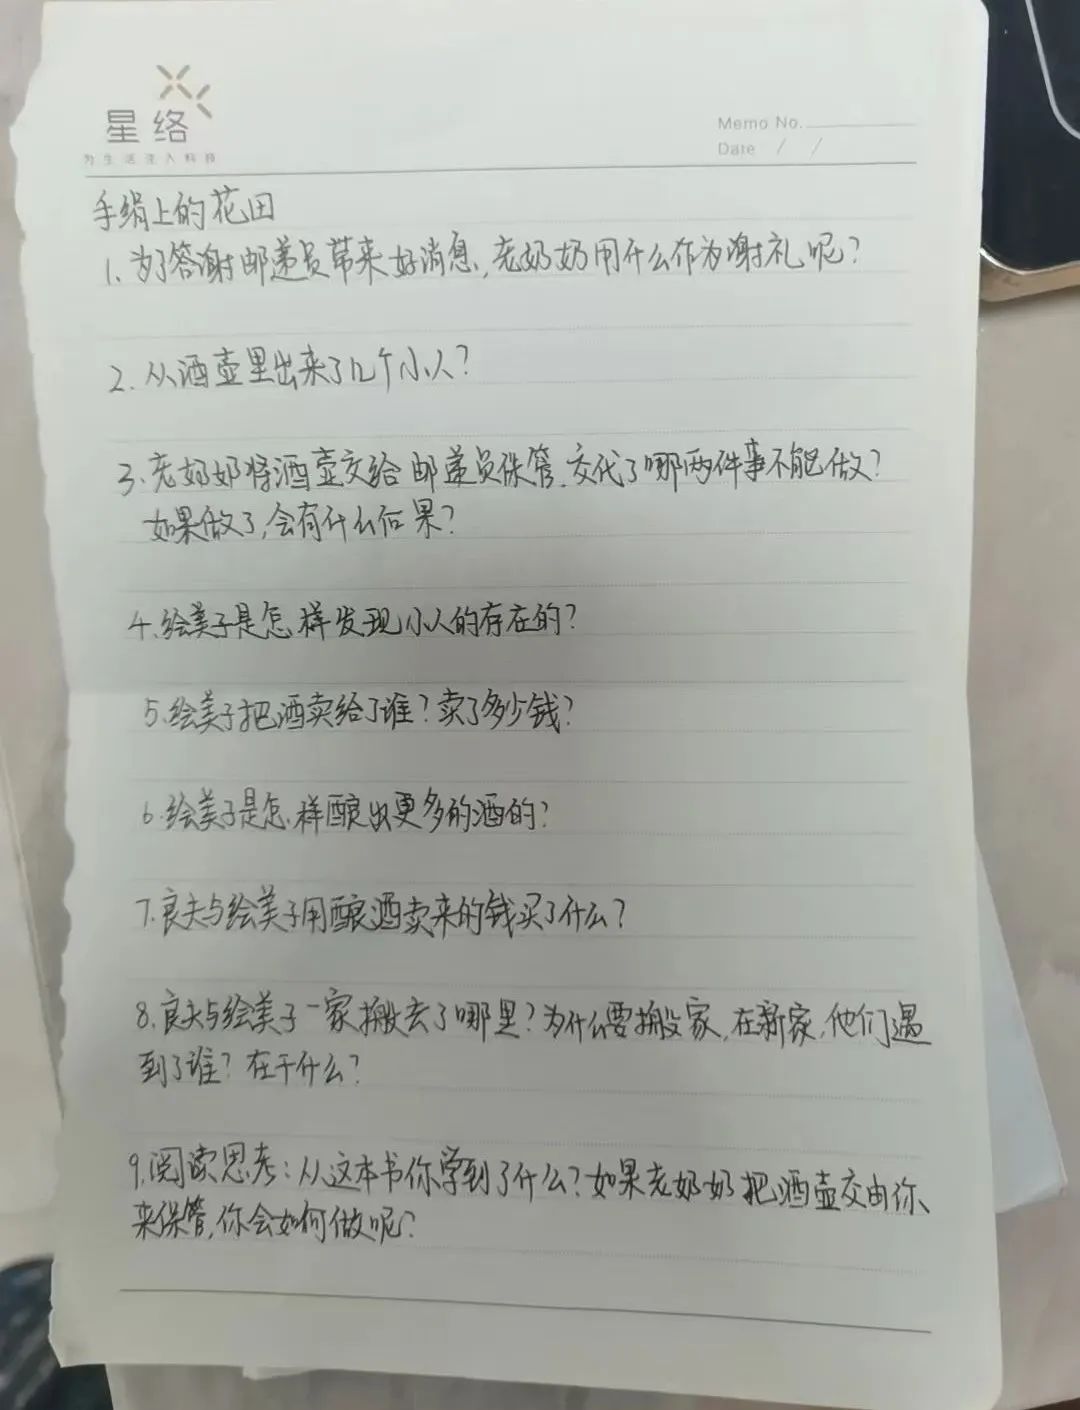 星络
为生活注入科技
Memo No.
Date / /
手绢上的花田
1.为了答谢邮递员带来好消息,老奶奶用什么作为谢礼呢?
2.从酒壶里出来了几个小人?
3.老奶奶将酒壶交给邮递员保管,交代了哪两件事不能做?
如果做了,会有什么后果?
4.绘美子是怎样发现小人的存在的?
5.绘美子把酒卖给了谁?卖了多少钱?
6.绘美子是怎样酿出更多的酒的?
7.良夫与绘美子用酿酒卖来的钱买了什么?
8.良夫与绘美子一家搬去了哪里?为什么要搬家,在新家,他们遇
到了谁?在干什么?
9.阅读思考:从这本书你学到了什么?如果老奶奶把酒壶交由你
来保管,你会如何做呢?